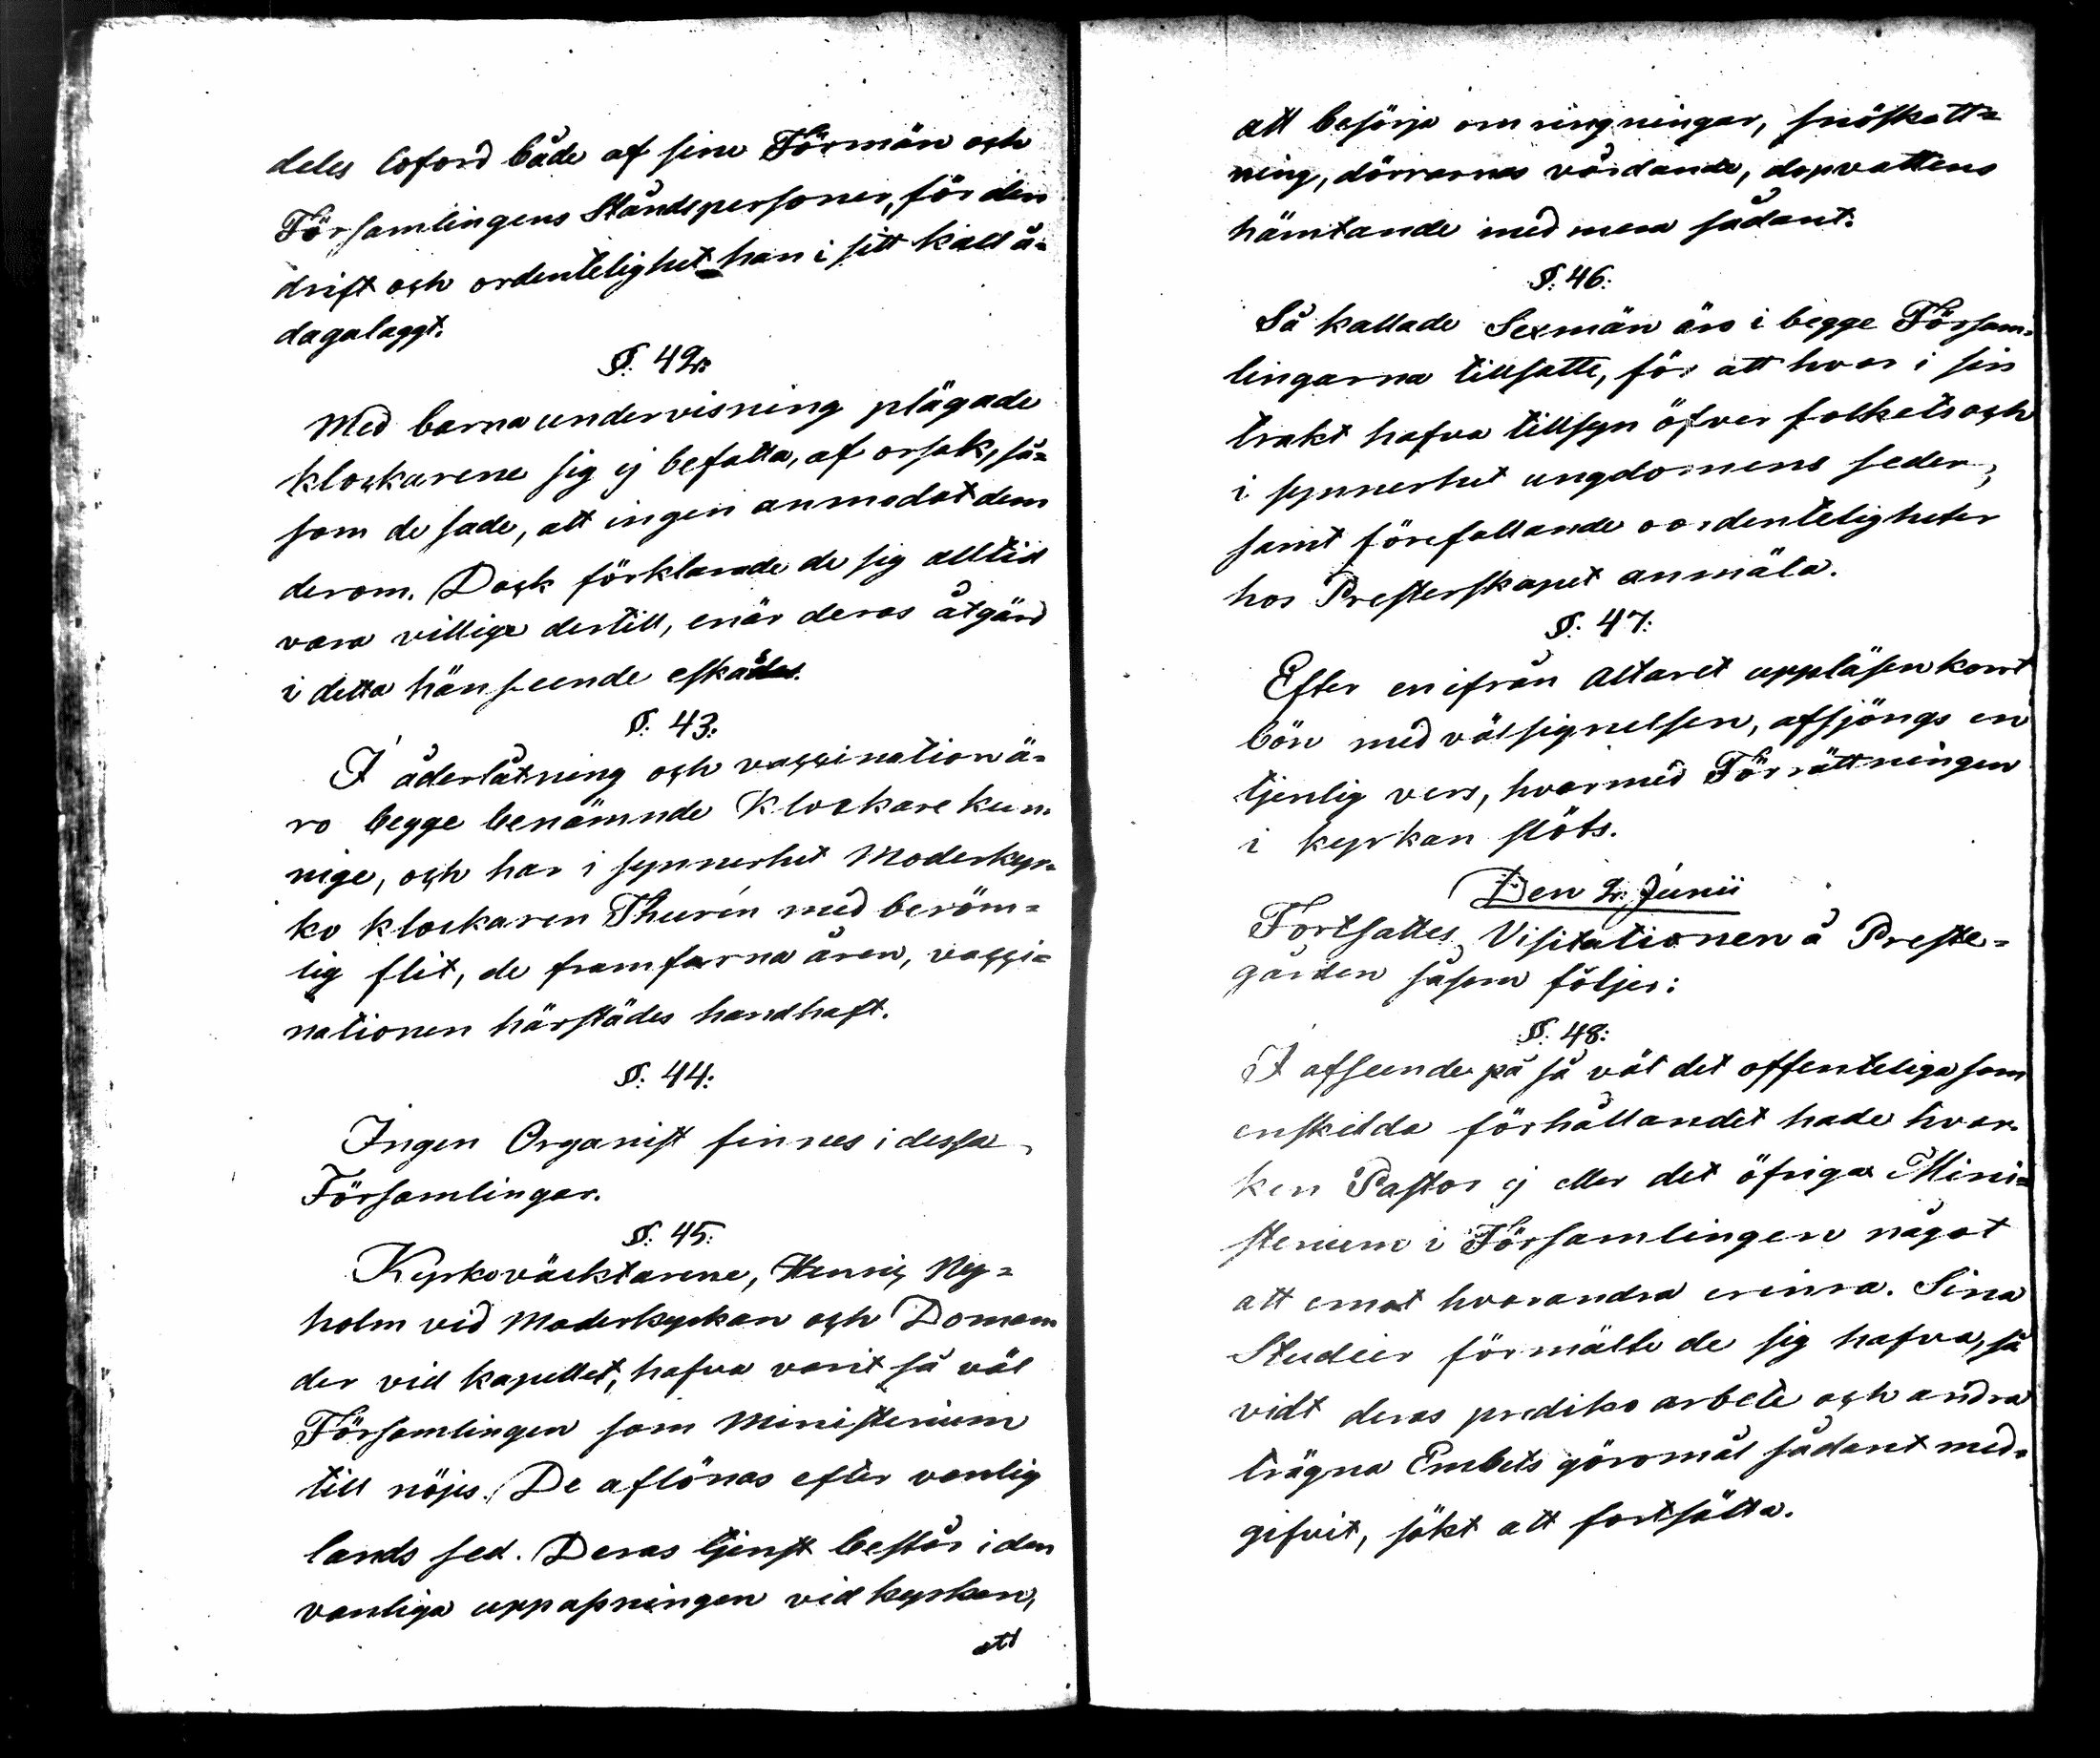 deles loford både af sine Förmän och
Församlingens Ståndspersoner, för den
drift och ordentelighet han i sitt kall å-
dagalaggt.
§. 42:
Med barnaundervisning plägade
klockarene sig ej befatta, af orsak, så-
som de sade, att ingen anmodat dem
derom. Dock förklarade de sig alltid
vara villige dertill, enär deras åtgärd
i detta hänseende eskades.
§. 43:
I åderlåtning och vaccination ä-
ro begge benämnde Klockare kun-
nige, och har i synnerhet Moderkyr-
ko klockaren Thurén med beröm-
lig flit, de framfarna åren, vacci-
nationen härstädes handhaft.
§. 44:
Ingen Organist finnes i dessa
Församlingar.
§. 45:
Kyrkoväcktarene, Henric Ny-
holm vid Moderkyrkan och Doman-
der vid kapellet, hafva varit så väl
Församlingen som Ministerium
till nöjes. De aflönas efter vanlig
lands sed. Deras tjenst består i den
vanliga uppassningen vid kyrkan,
att
att besörja om ringningar, snöskott-
ning, dörrarnas vårdande, dopvattens
hämtande med mera sådant.
§. 46:
Så kallade Sexmän äro i begge Försam-
lingarna tillsatte, för att hvar i sin
trakt hafva tillsyn öfver folkets och
i synnerhet ungdomens seder,
samt förefallande oordenteligheter
hos Presterskapet anmäla.
§. 47:
Efter en ifrån Altaret uppläsen kort
bön med välsignelsen, afsjöngs en
tjenlig vers, hvarmed Förrättningen
i kyrkan slöts.
Den 2. Junii
Fortsattes Visitationen å Preste-
gården såsom följer:
§. 48:
I afseende på så väl det offenteliga som
enskilda förhållandet hade hvar-
ken Pastor ej eller det öfriga Mini-
sterium i Församlingen något
att emot hvarandra erinra. Sina
Studier förmälte de sig hafva, så
vidt deras prediko arbete och andra
trägna Embets göromål sådant med-
gifvit, sökt att fortsätta.